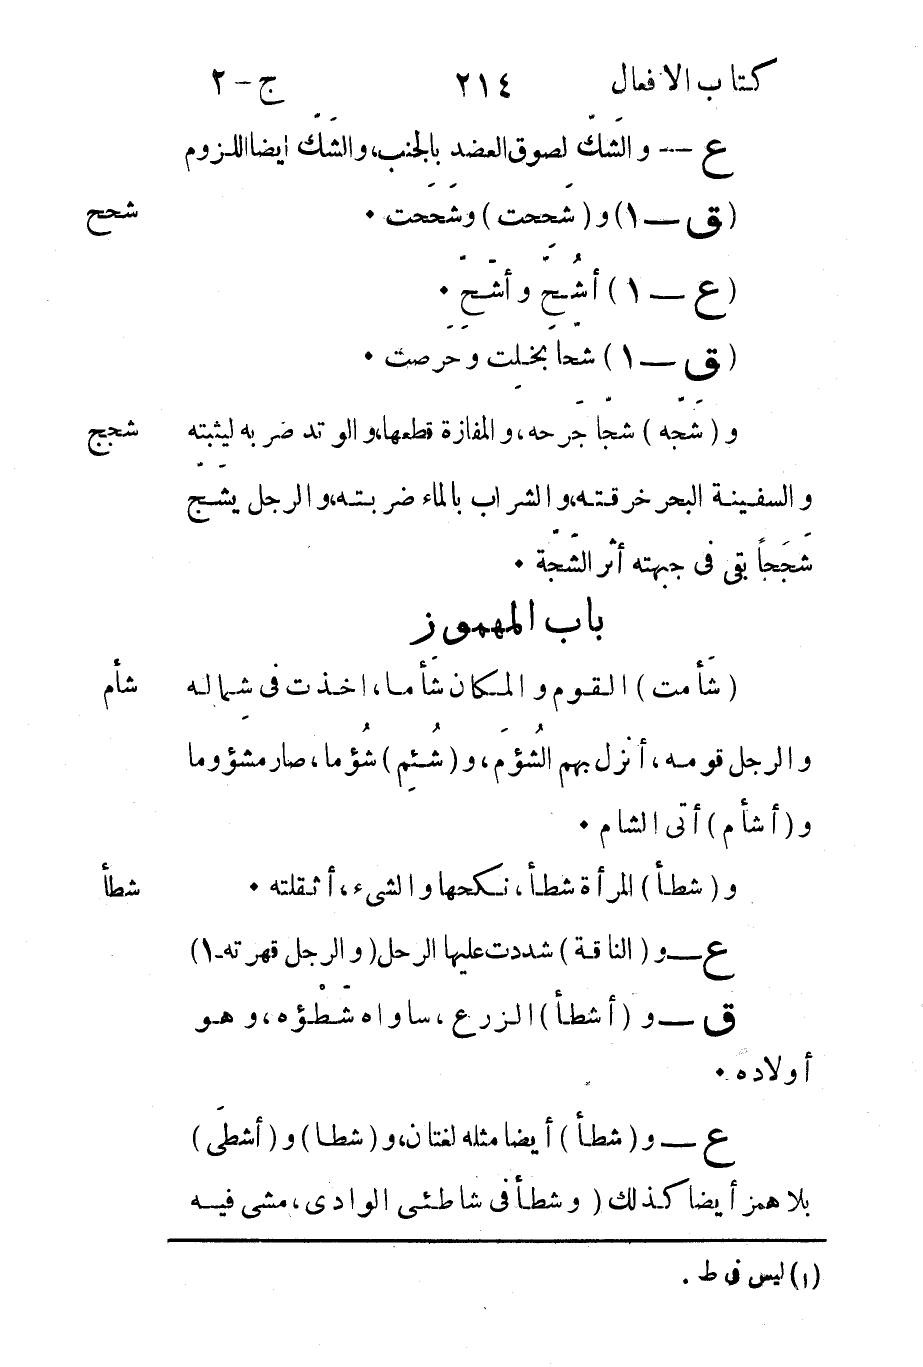 كتاب الافعال ٢١٤ ج-٢
ع — و الشَّكّ لصوق العضد بالجنب، و الشَّكّ ايضا اللزوم
(ق — ١) و (شَححت) وشَحَحت • شحح
(ع — ١) أشُحّ و أشَحّ •
(ق — ١) شحّا بخَلت و حَرصت •
و (شجه) شجّا جَرحه، و المفازة قطعها، و الوتد ضربه ليثبته شجج
و السفينة البحر خرقته، و الشراب بالماء ضربته، و الرجل يشَجّ
شَجَجاً بقى فى جبهته أثر الشَّجّة •
باب المهموز
(شَأمت) القوم و المكان شَأما، اخذت فى شماله شأم
و الرجل قومه، أنزل بهم الشُؤم، و (شُئِم) شُؤما، صار مشؤوما
و (أشأم) أتى الشام •
و (شطأ) المرأة شطأ، نكحها و الشىء، أثقلته • شطأ
ع — و (الناقة) شددت عليها الرحل (و الرجل قهرته-١)
ق — و (أشطأ) الزرع، ساواه شَطْؤه، و هو
أولاده •
ع — و (شطأ) أيضا مثله لغتان، و (شطا) و (أشطَى)
بلا همز أيضا كذلك (و شطأ فى شاطئى الوادى، مشى فيه
(١) ليس فى ط .